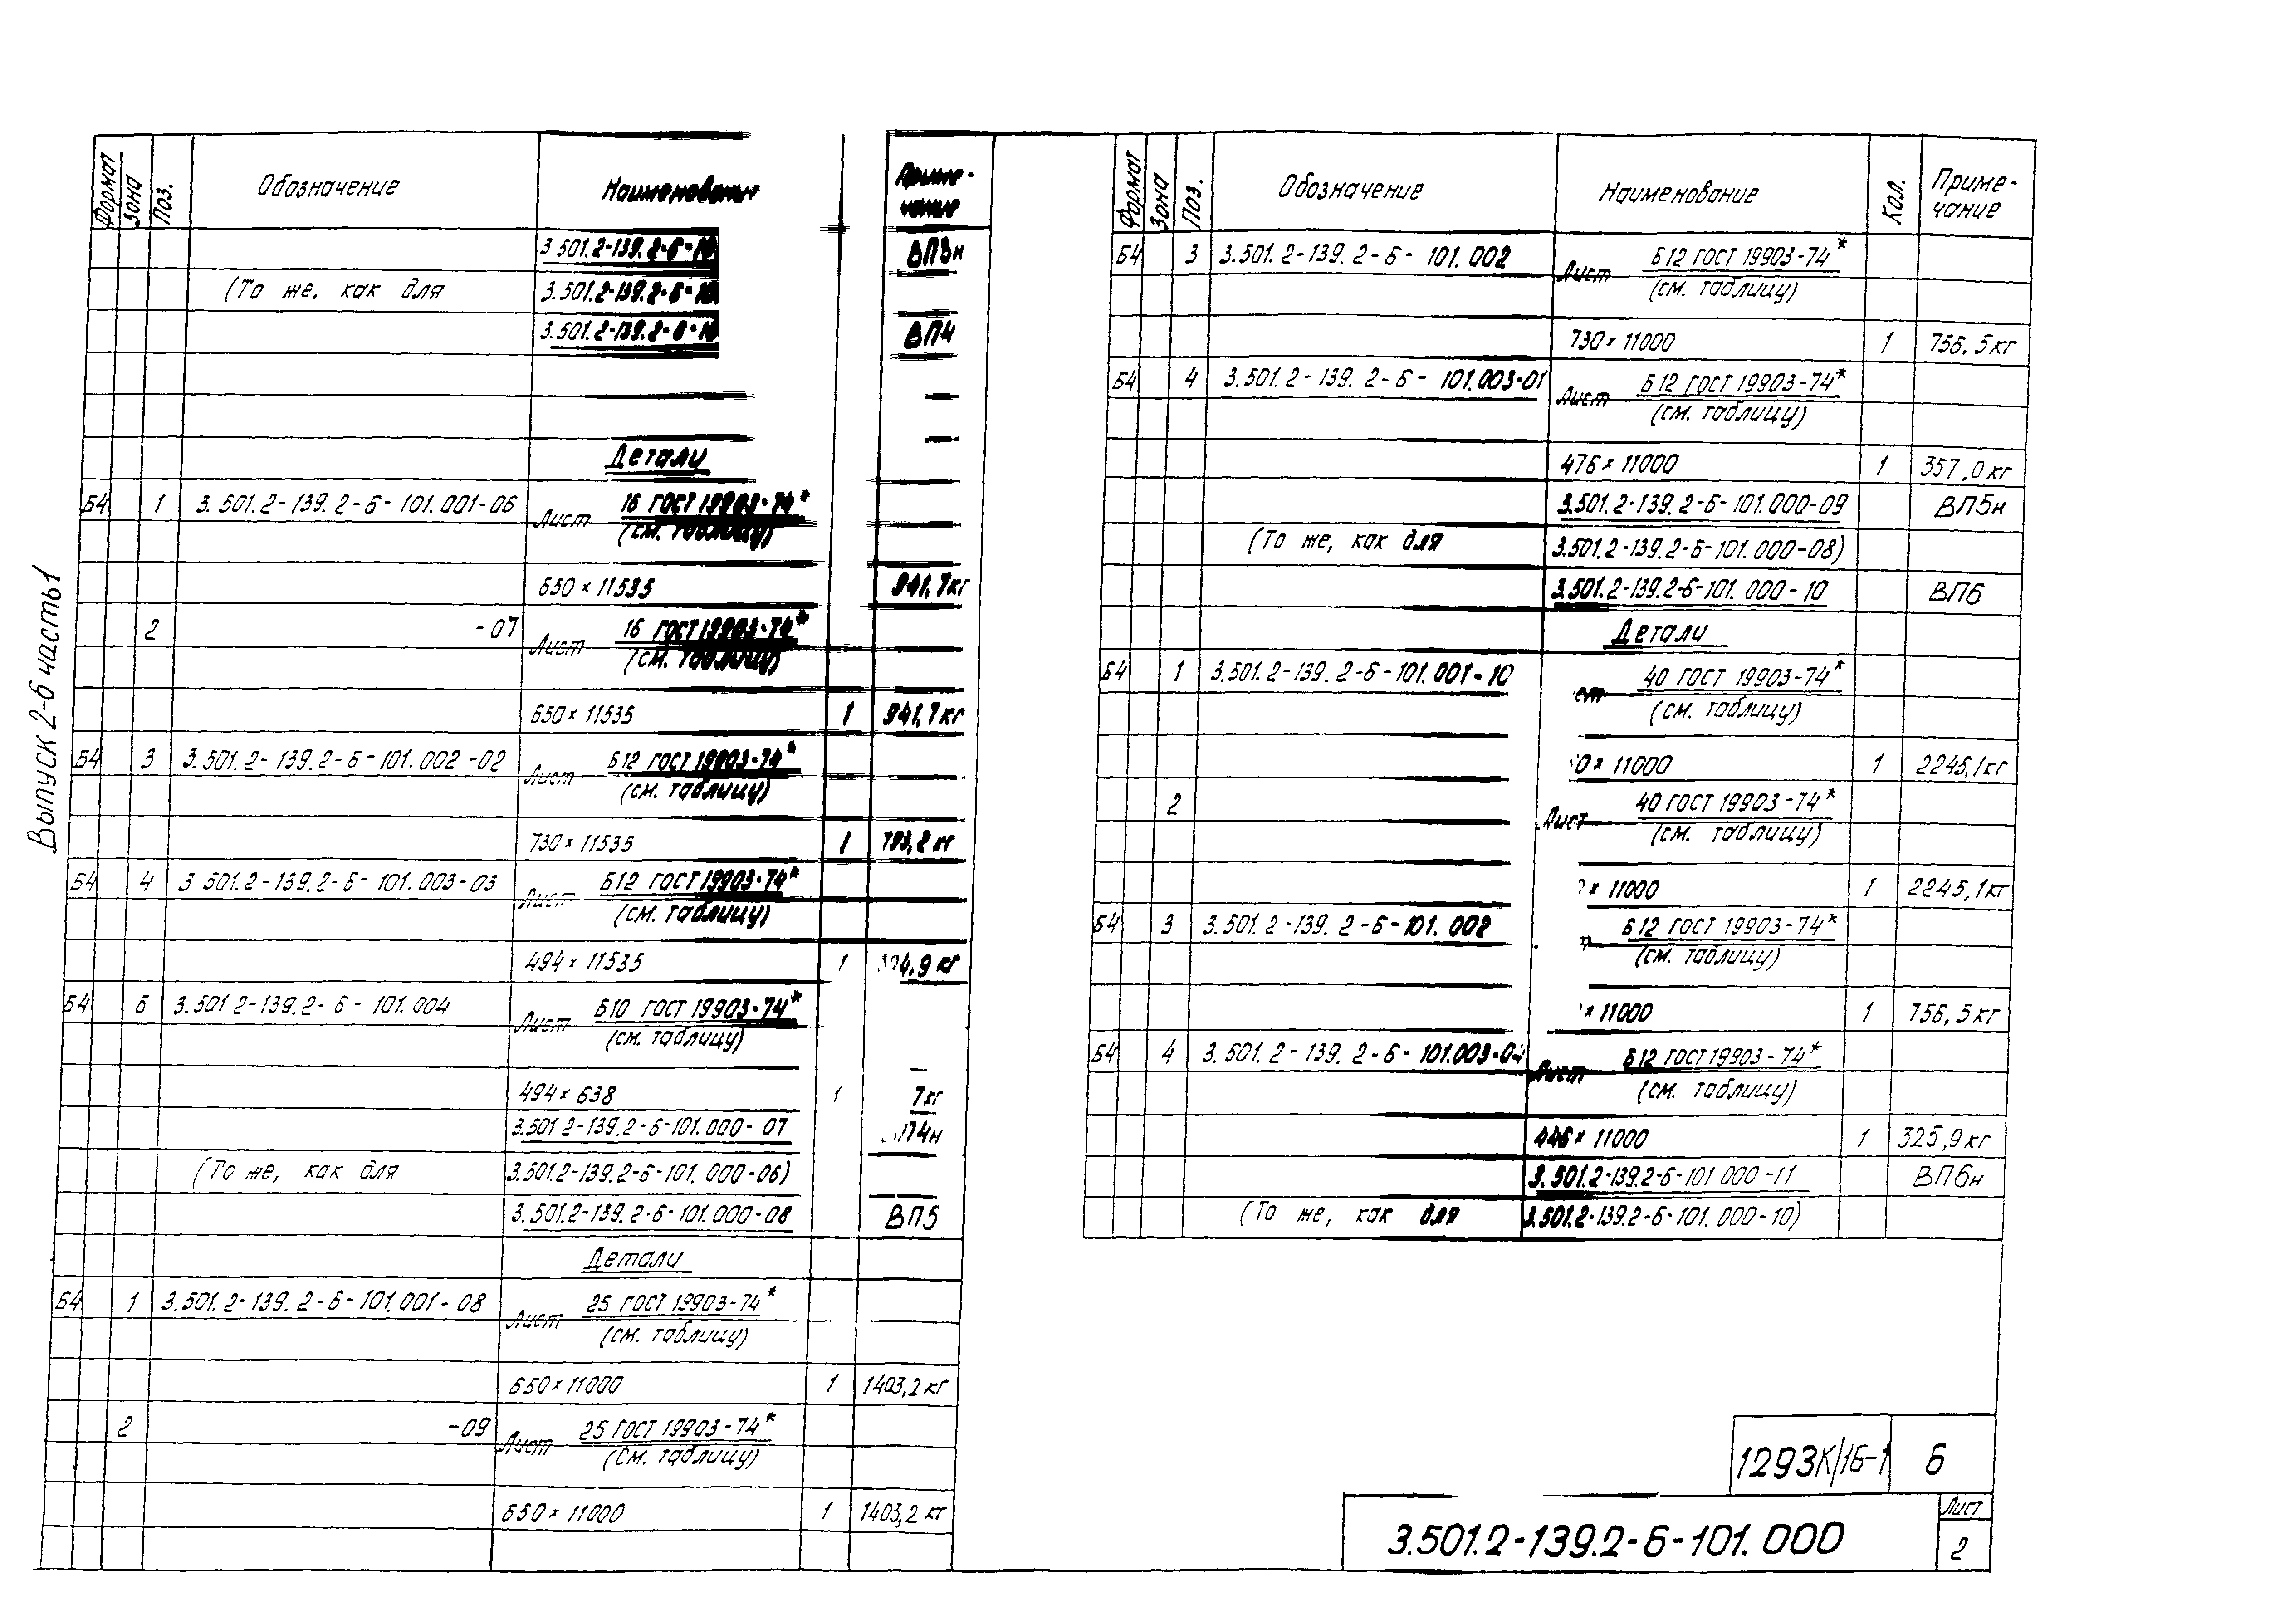 Выпуск 2-6 часть 1
Формат Зона Поз. Обозначение Наименование Приме-
чание
3.501.2-139.2-6-10 ВП3н
(То же, как для 3.501.2-139.2-6-10
3.501.2-139.2-6-10 ВП4
Детали
Б4 1 3.501.2-139.2-6-101.001-06 Лист 16 ГОСТ 19903-74*
(см. таблицу)
650×11535 941,7кг
2 -07 Лист 16 ГОСТ 19903-74*
(см. таблицу)
650×11535 1 941,7кг
Б4 3 3.501.2-139.2-6-101.002-02 Лист Б12 ГОСТ 19903-74*
(см. таблицу)
730×11535 1 793,2 кг
Б4 4 3 501.2-139.2-6-101.003-03 Лист Б12 ГОСТ 19903-74*
(см. таблицу)
494×11535 1 4,9 кг
Б4 6 3.501 2-139.2-6-101.004 Лист Б10 ГОСТ 19903-74*
(см. таблицу)
494×638 1 7кг
3.501 2-139.2-6-101.000-07 П4н
(То же, как для 3.501.2-139.2-6-101.000-06)
3.501.2-139.2-6-101.000-08 ВП5
Детали
Б4 1 3.501.2-139.2-6-101.001-08 Лист 25 ГОСТ 19903-74*
(см. таблицу)
650×11000 1 1403,2 кг
2 -09 Лист 25 ГОСТ 19903-74*
(см. таблицу)
650×11000 1 1403,2 кг
Формат Зона Поз. Обозначение Наименование Кол. Приме-
чание
Б4 3 3.501.2-139.2-6-101.002 Лист Б12 ГОСТ 19903-74*
(см. таблицу)
730×11000 1 756,5кг
Б4 4 3.501.2-139.2-6-101.003-01 Лист Б12 ГОСТ 19903-74*
(см. таблицу)
476×11000 1 357,0кг
3.501.2-139.2-6-101.000-09 ВП5н
(То же, как для 3.501.2-139.2-6-101.000-08)
3.501.2-139.2-6-101.000-10 ВП6
Детали
Б4 1 3.501.2-139.2-6-101.001-10 ст 40 ГОСТ 19903-74*
(см. таблицу)
0×11000 1 2245,1кг
2 Лист 40 ГОСТ 19903-74*
(см. таблицу)
×11000 1 2245,1кг
Б4 3 3.501.2-139.2-6-101.002 Б12 ГОСТ 19903-74*
(см. таблицу)
×11000 1 756,5кг
Б4 4 3.501.2-139.2-6-101.003-04 Лист Б12 ГОСТ 19903-74*
(см. таблицу)
446×11000 1 325,9кг
3.501.2-139.2-6-101 000-11 ВП6н
(То же, как для 3.501.2-139.2-6-101.000-10)
1293К/16-1 6
3.501.2-139.2-6-101.000 Лист
2